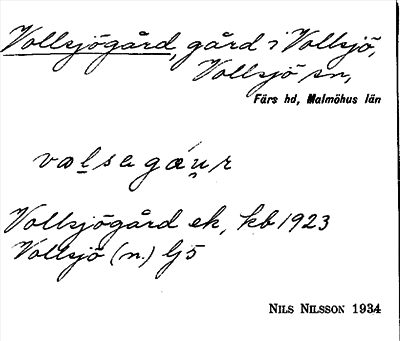 Vollsjögård, gård i Vollsjö,
Vollsjö sn,
Färs hd, Malmöhus län
valsagáu̯r
Vollsjögård ek, kb 1923
Vollsjö (n.) lj5
NILS NILSSON 1934